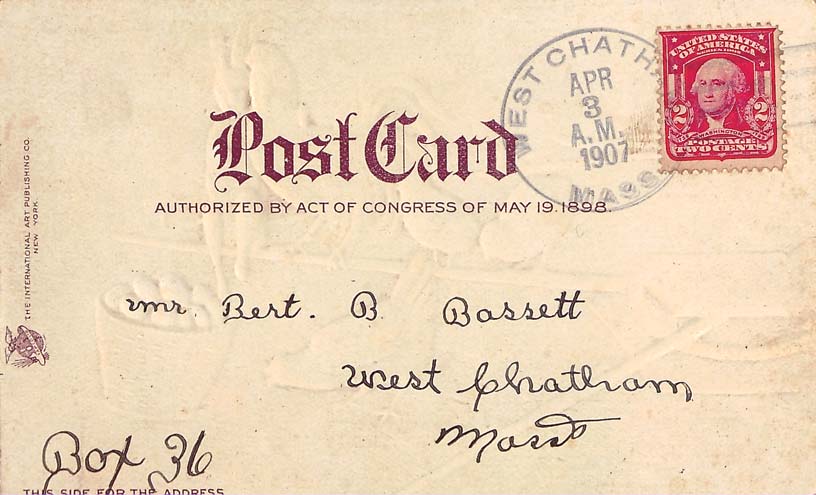 WEST CHATHAM
APR
3
A.M.
1907
MASS
UNITED STATES
OF AMERICA
SERIES 1902
2 2
WASHINGTON
POSTAGE
TWO CENTS
Post Card
AUTHORIZED BY ACT OF CONGRESS OF MAY 19.1898.
THE INTERNATIONAL ART PUBLISHING CO.
NEW YORK
Mr. Bert. B. Bassett
West Chatham
Mass
Box 36
THIS SIDE FOR THE ADDRESS